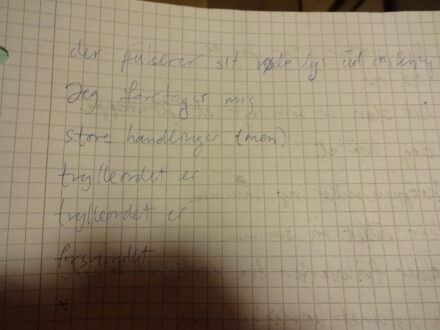 der pulserer sit røde lys ud
Jeg foretager mig
store handlinger (men)
trylleordet er
trylleordet er
forsvundet
*